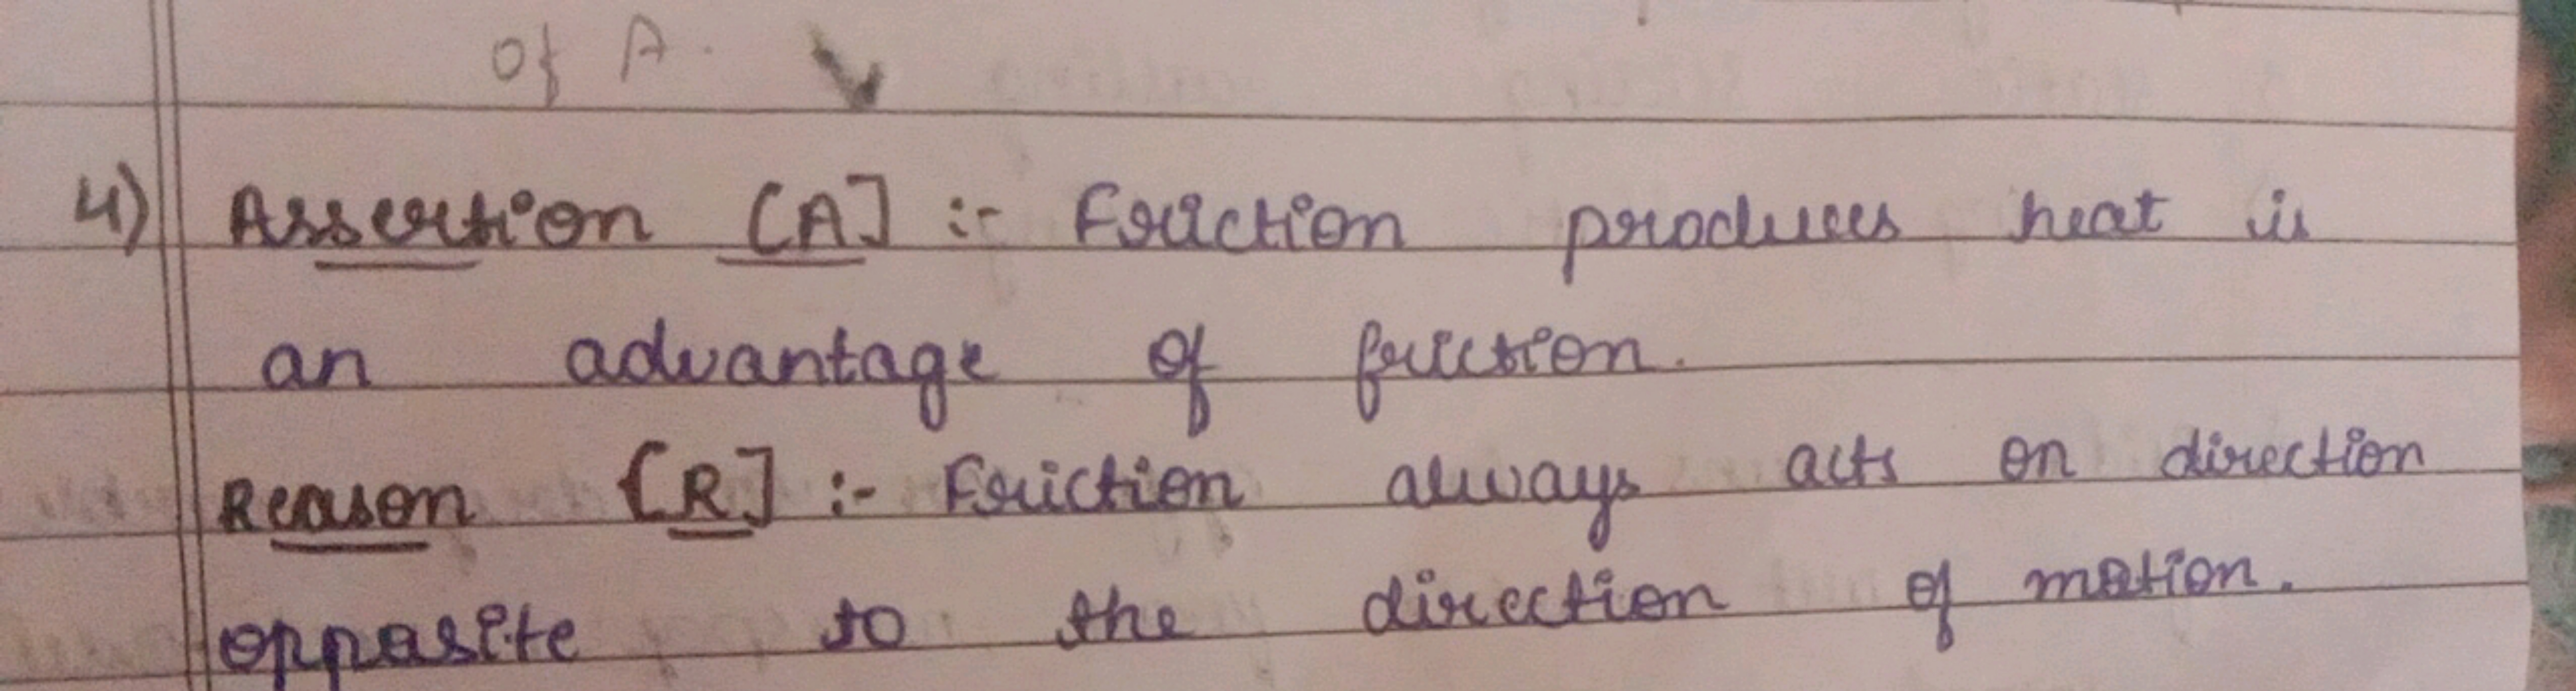 of A.
4) Assertion [A] :- Friction produces heat is
an advantage of friction.
Reason [R] :- Friction always acts on direction
opposite to the direction of motion.